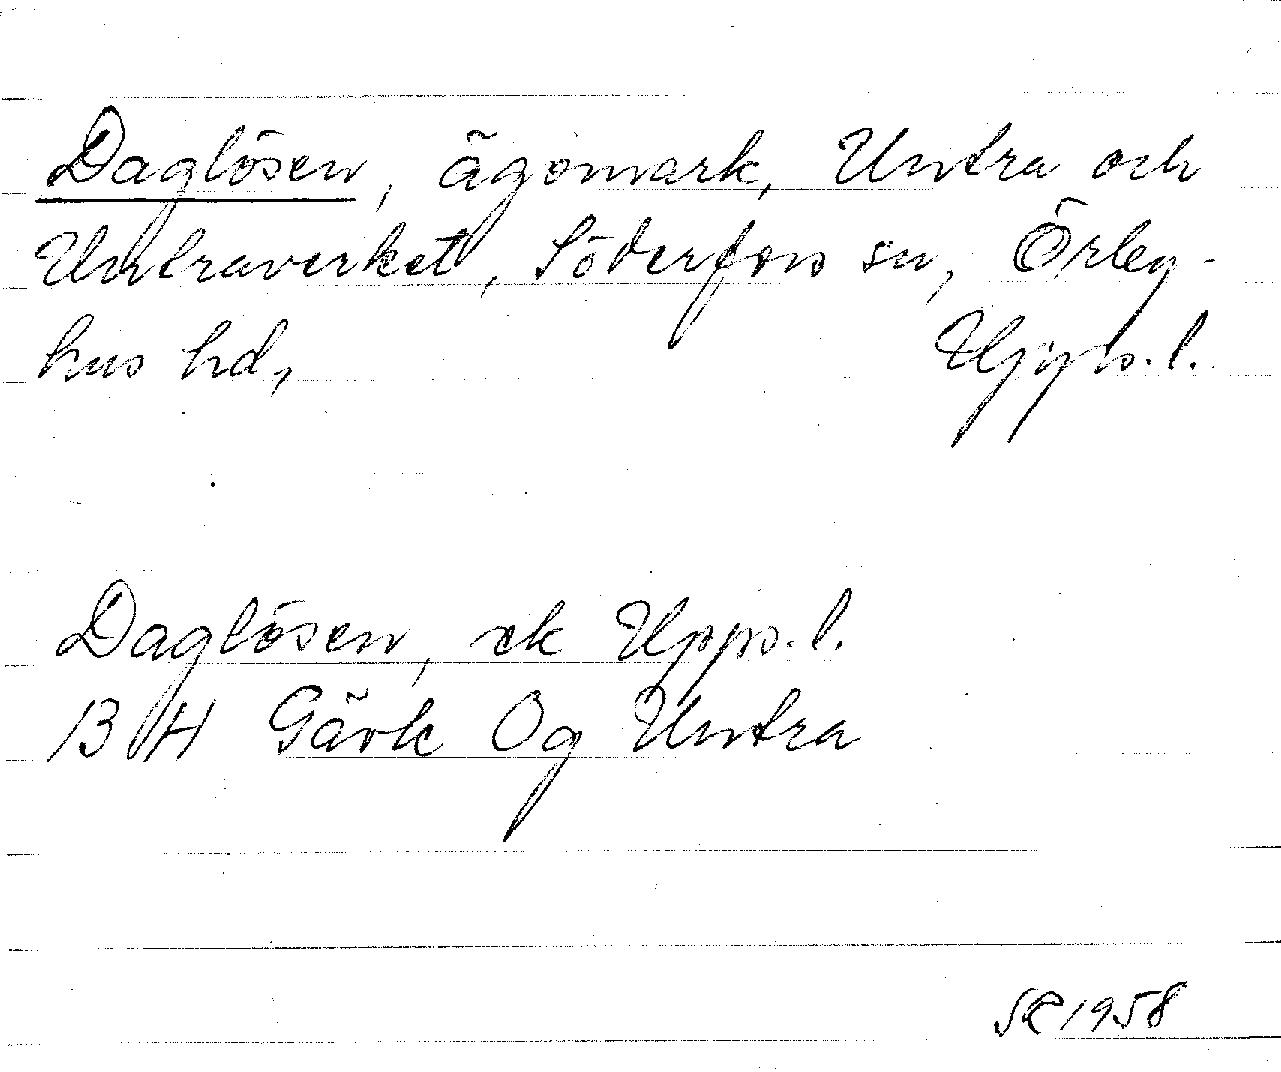 Daglösen, ägomark, Untra och
Untraverket, Söderfors sn, Örby-
hus hd, Upps. l.
Daglösen, rk Upps. l.
13 H Gävle Og Untra
SR 1958